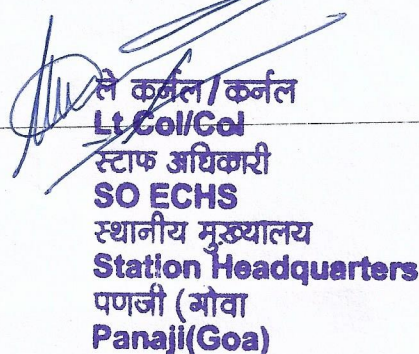 ले कर्नल/कर्नल
Lt Col/Col
स्टाफ अधिकारी
SO ECHS
स्थानीय मुख्यालय
Station Headquarters
पणजी (गोवा
Panaji(Goa)